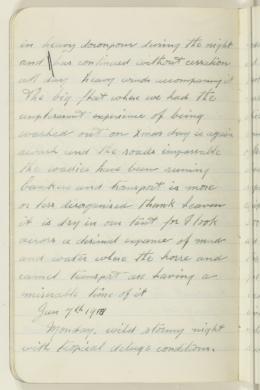 in heavy downpour during the night
and has continued without cessation
all day heavy winds accompanying it
The big flat where we had the
unpleasant experience of being
washed out on Xmas day is again
awash and the roads impassable
the wadies have been running
bankers and transport is more
or less disorganised thank heaven
it is dry in our tent for I look
across a dismal expanse of mud
and water where the horse and
camel transport are having a
miserable time of it
Jan 7th 1918
Monday, wild stormy night
with tropical deluge conditions.